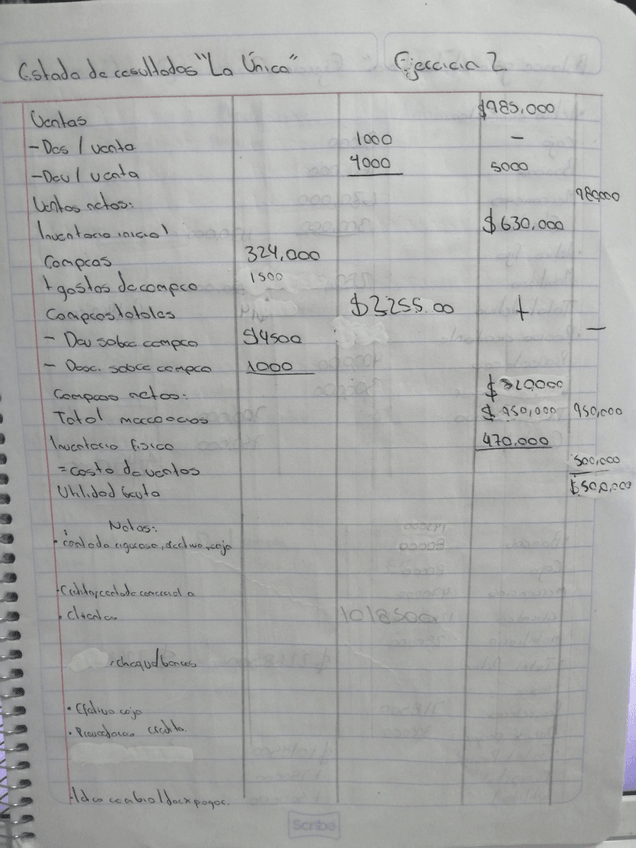 Estado de resultados "La Única" Ejercicio 2
Ventas $985,000
- Des / venta 1000 -
- Dev / venta 4000 5000
Ventas netas: 980,000
Inventario inicial $630,000
Compras 324,000
+ gastos de compra 1500
Compras totales +
- Dev sobre compra
- Desc. sobre compra 1000 -
Compras netas: $320,000
Total mercancias $950,000 950,000
Inventario fisico 470,000
= costo de ventas 500,000
Utilidad bruta $500,000
Notas:
• Contado riguroso, efectivo, caja
• Clientes
, cheque/bancos
• Efectivo caja
• Proveedores credito
Scribe